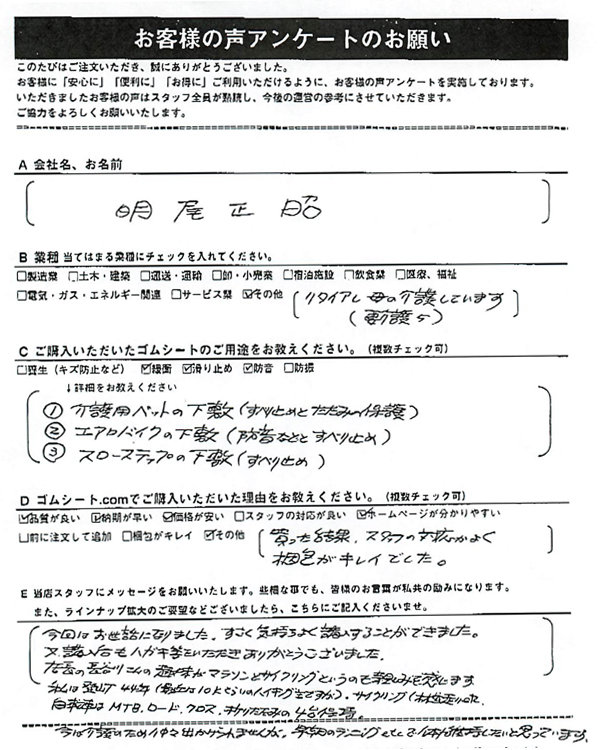 お客様の声アンケートのお願い
このたびはご注文いただき、誠にありがとうございました。
お客様に「安心に」「便利に」「お得に」ご利用いただけるように、お客様の声アンケートを実施しております。
いただきましたお客様の声はスタッフ全員が熟読し、今後の運営の参考にさせていただきます。
ご協力をよろしくお願いいたします。
A 会社名、お名前
明尾正昭
B 業種 当てはまる業種にチェックを入れてください。
□製造業 □土木・建築 □運送・運輸 □卸・小売業 □宿泊施設 □飲食業 □医療、福祉
□電気・ガス・エネルギー関連 □サービス業 ☑その他 (リタイアし母の介護しています
(要介護5)
C ご購入いただいたゴムシートのご用途をお教えください。(複数チェック可)
□養生(キズ防止など) ☑緩衝 ☑滑り止め ☑防音 □防振
↓詳細をお教えください
① 介護用ベットの下敷(すべり止めとたたみの保護)
② エアロバイクの下敷(防音などとすべり止め)
③ スローステップの下敷(すべり止め)
D ゴムシート.comでご購入いただいた理由をお教えください。(複数チェック可)
☑品質が良い ☑納期が早い ☑価格が安い □スタッフの対応が良い ☑ホームページが分かりやすい
□前に注文して追加 □梱包がキレイ ☑その他 (買った結果、スタッフの対応がよく
梱包がキレイでした。
E 当店スタッフにメッセージをお願いいたします。些細な事でも、皆様のお言葉が私共の励みになります。
また、ラインナップ拡大のご要望などございましたら、こちらにご記入くださいませ。
今回はお世話になりました。すごく気持ちよく購入することができました。
又、購入後もハガキ等をいただきありがとうございました。
店長の長谷川さんの趣味がマラソンとサイクリングというのも親しみを感じます
私は登山44年(最近は10kぐらいのハイキングですが)、サイクリング
自転車はMTB、ロード、クロス、折りたたみの4台
今は介護のため 出かけられませんが、早朝のランニングetcで体力維持したいと思っています。